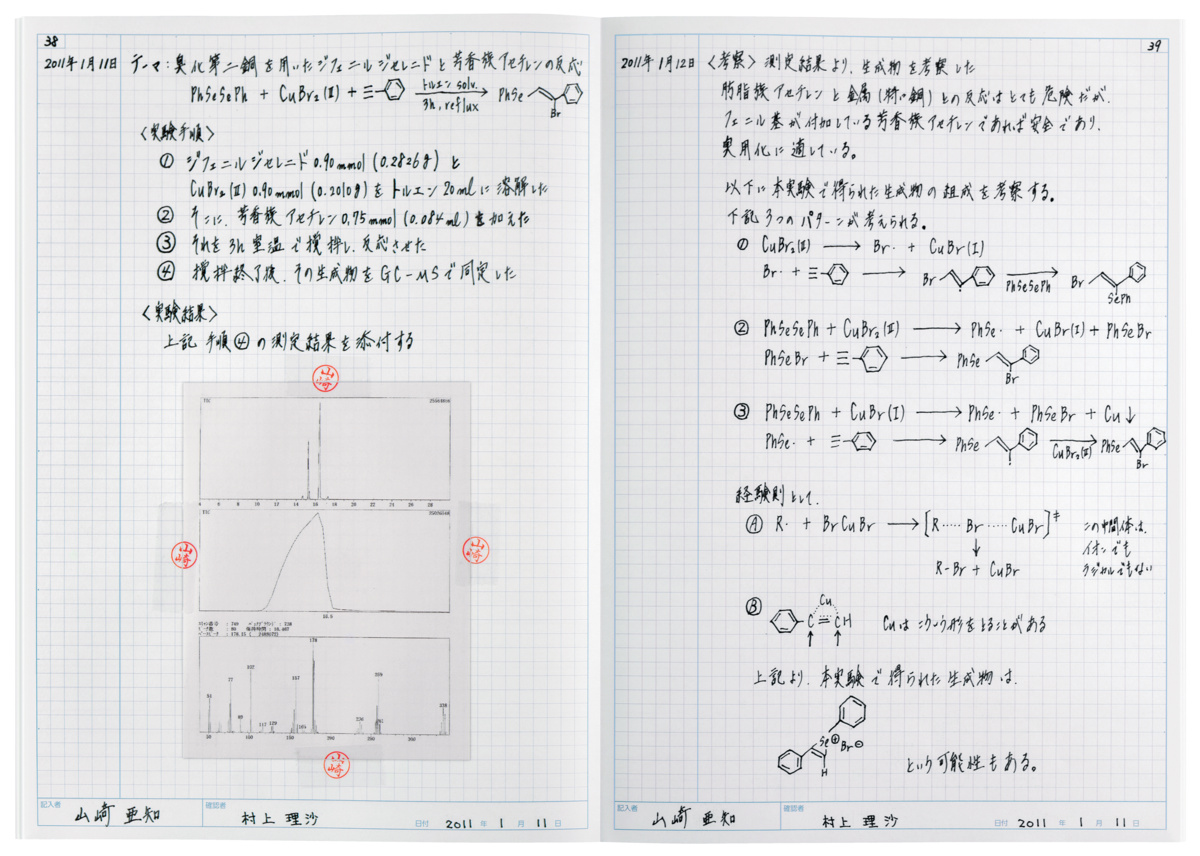 38
2011年1月11日
テーマ:臭化第二銅を用いたジフェニルジセレニドと芳香族アセチレンの反応
PhSeSePh + CuBr₂(II) +
トルエン solv.
3h, reflux
PhSe
Br
〈実験手順〉
① ジフェニルジセレニド 0.90mmol (0.2826g) と
CuBr₂(II) 0.90mmol (0.2010g) をトルエン20mlに溶解した
② そこに、芳香族アセチレン0.75mmol (0.084ml) を加えた
③ それを3h室温で攪拌し、反応させた
④ 攪拌終了後、その生成物をGC-MSで同定した
〈実験結果〉
上記 手順④の測定結果を添付する
山崎
TIC
6 8 10 12 14 16 18 20 22 24 26 28
山崎
TIC
山崎
16.5
178
102
77
51
89
157
50 100 150 200 250 300
山崎
記入者 山崎 亜知
確認者 村上 理沙
日付 2011 年 1 月 11 日
39
2011年1月12日
〈考察〉測定結果より、生成物を考察した
脂肪族アセチレンと金属(特に銅)との反応はとても危険だが、
フェニル基が付加している芳香族アセチレンであれば安全であり、
実用化に適している。
以下に本実験で得られた生成物の組成を考察する。
下記3つのパターンが考えられる。
① CuBr₂(II) → Br· + CuBr(I)
Br· + → Br PhSeSePh → Br
SePh
② PhSeSePh + CuBr₂(II) → PhSe· + CuBr(I) + PhSeBr
PhSeBr + → PhSe
Br
③ PhSeSePh + CuBr(I) → PhSe· + PhSeBr + Cu↓
PhSe· + → PhSe CuBr₂(II) → PhSe
Br
経験則として、
Ⓐ R· + BrCuBr → [R·····Br·····CuBr]‡
この中間体は、
イオンでも
ラジカルでもない
↓
R-Br + CuBr
Ⓑ Cu
C=CH
Cuはこういう形をとることがある
上記より、本実験で得られた生成物は、
Se⊕ Br⊖
H
という可能性もある。
記入者 山崎 亜知
確認者 村上 理沙
日付 2011 年 1 月 11 日